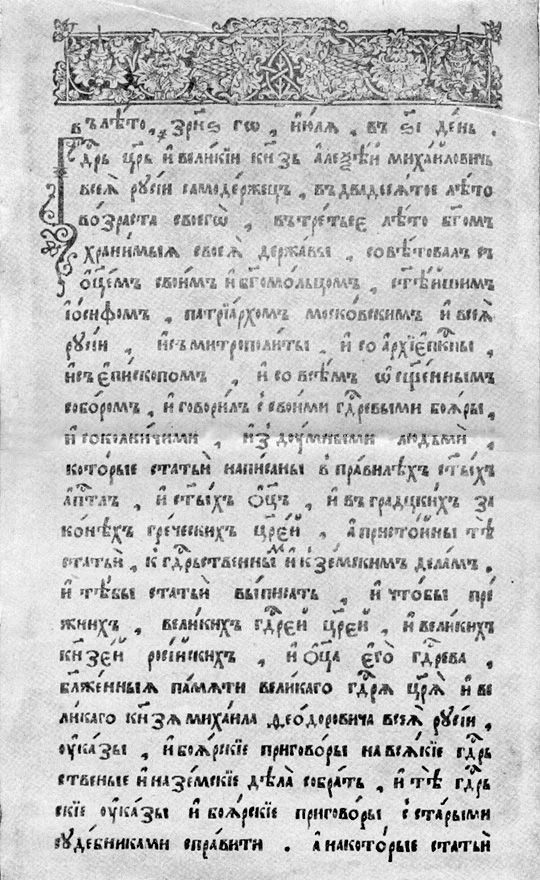 въ лѣто, ҂зрн҃ѕ гѡ, і҆ю́лѧ, въ ѕ҃і де́нь.
Гдⷭ҇рь цр҃ь и҆ вели́кїи кнѧ́зь а҆леѯѣ́й миха́йловичь
всеѧ̀ русі́и самоде́ржецъ, въ двадесѧ́тое лѣ́то
во́зраста своегѡ̀, въ тре́тьеє лѣ́то бг҃омъ
храни́мыѧ своеѧ̀ держа́вы, совѣ́товалъ съ
ѻ҆ц҃е́мъ свои́мъ и҆ бг҃омо́льцомъ, ст҃ѣ́йшимъ
і҆о́сифомъ, патрїа́рхомъ моско́вскимъ и҆ всеѧ̀
русі́и, и҆ съ митрополи́ты, и҆ со а҆рхїєпⷭ҇кпы,
и҆ съ є҆пи́скопомъ, и҆ со всѣ́мъ ѡ҆сщ҃е́ннымъ
собо́ромъ, и҆ говори́лъ с свои́ми гдⷭ҇ревыми боѧ́ры,
и҆ соко́лничими, и҆ з ду́мными людьмѝ,
кото́рые статьѝ напи́саны в пра́вилѣхъ ст҃ы́хъ
а҆пⷭ҇тлъ, и҆ ст҃ы́хъ ѻ҆ц҃ъ, и҆ въ градцкихъ за
ко́нѣхъ гре́ческихъ цр҃е́й, а҆ присто́йны тѣ̀
статьѝ, к гдⷭ҇рьственнымъ и҆ к зе́мскимъ дела́мъ.
и҆ тѣ́бы статьѝ вы́писать, и҆ что́бы пре́
жнихъ, вели́кихъ гдⷭ҇рей цр҃е́й, и҆ вели́кихъ
кнѧзе́й росі́йскихъ, и҆ ѻ҆ц҃а̀ є҆гѡ̀ гдⷭ҇рева,
блаже́нныѧ па́мѧти вели́каго гдⷭ҇рѧ цр҃ѧ̀ и҆ ве
ли́каго кнѧ́зѧ миха́ила ѳео́доровича всеѧ̀ русі́и,
ѹ҆ка́зы, и҆ боѧ́рскїе пригово́ры на всѧ́кїе гдⷭ҇рь
ственые и҆ на зе́мскїе дѣ́ла собра́ть, и҆ тѣ̀ гдⷭ҇рь
скїе ѹ҆ка́зы и҆ боѧ́рскїе пригово́ры с ста́рыми
суде́бниками спра́вити. а҆ на кото́рые статьѝ